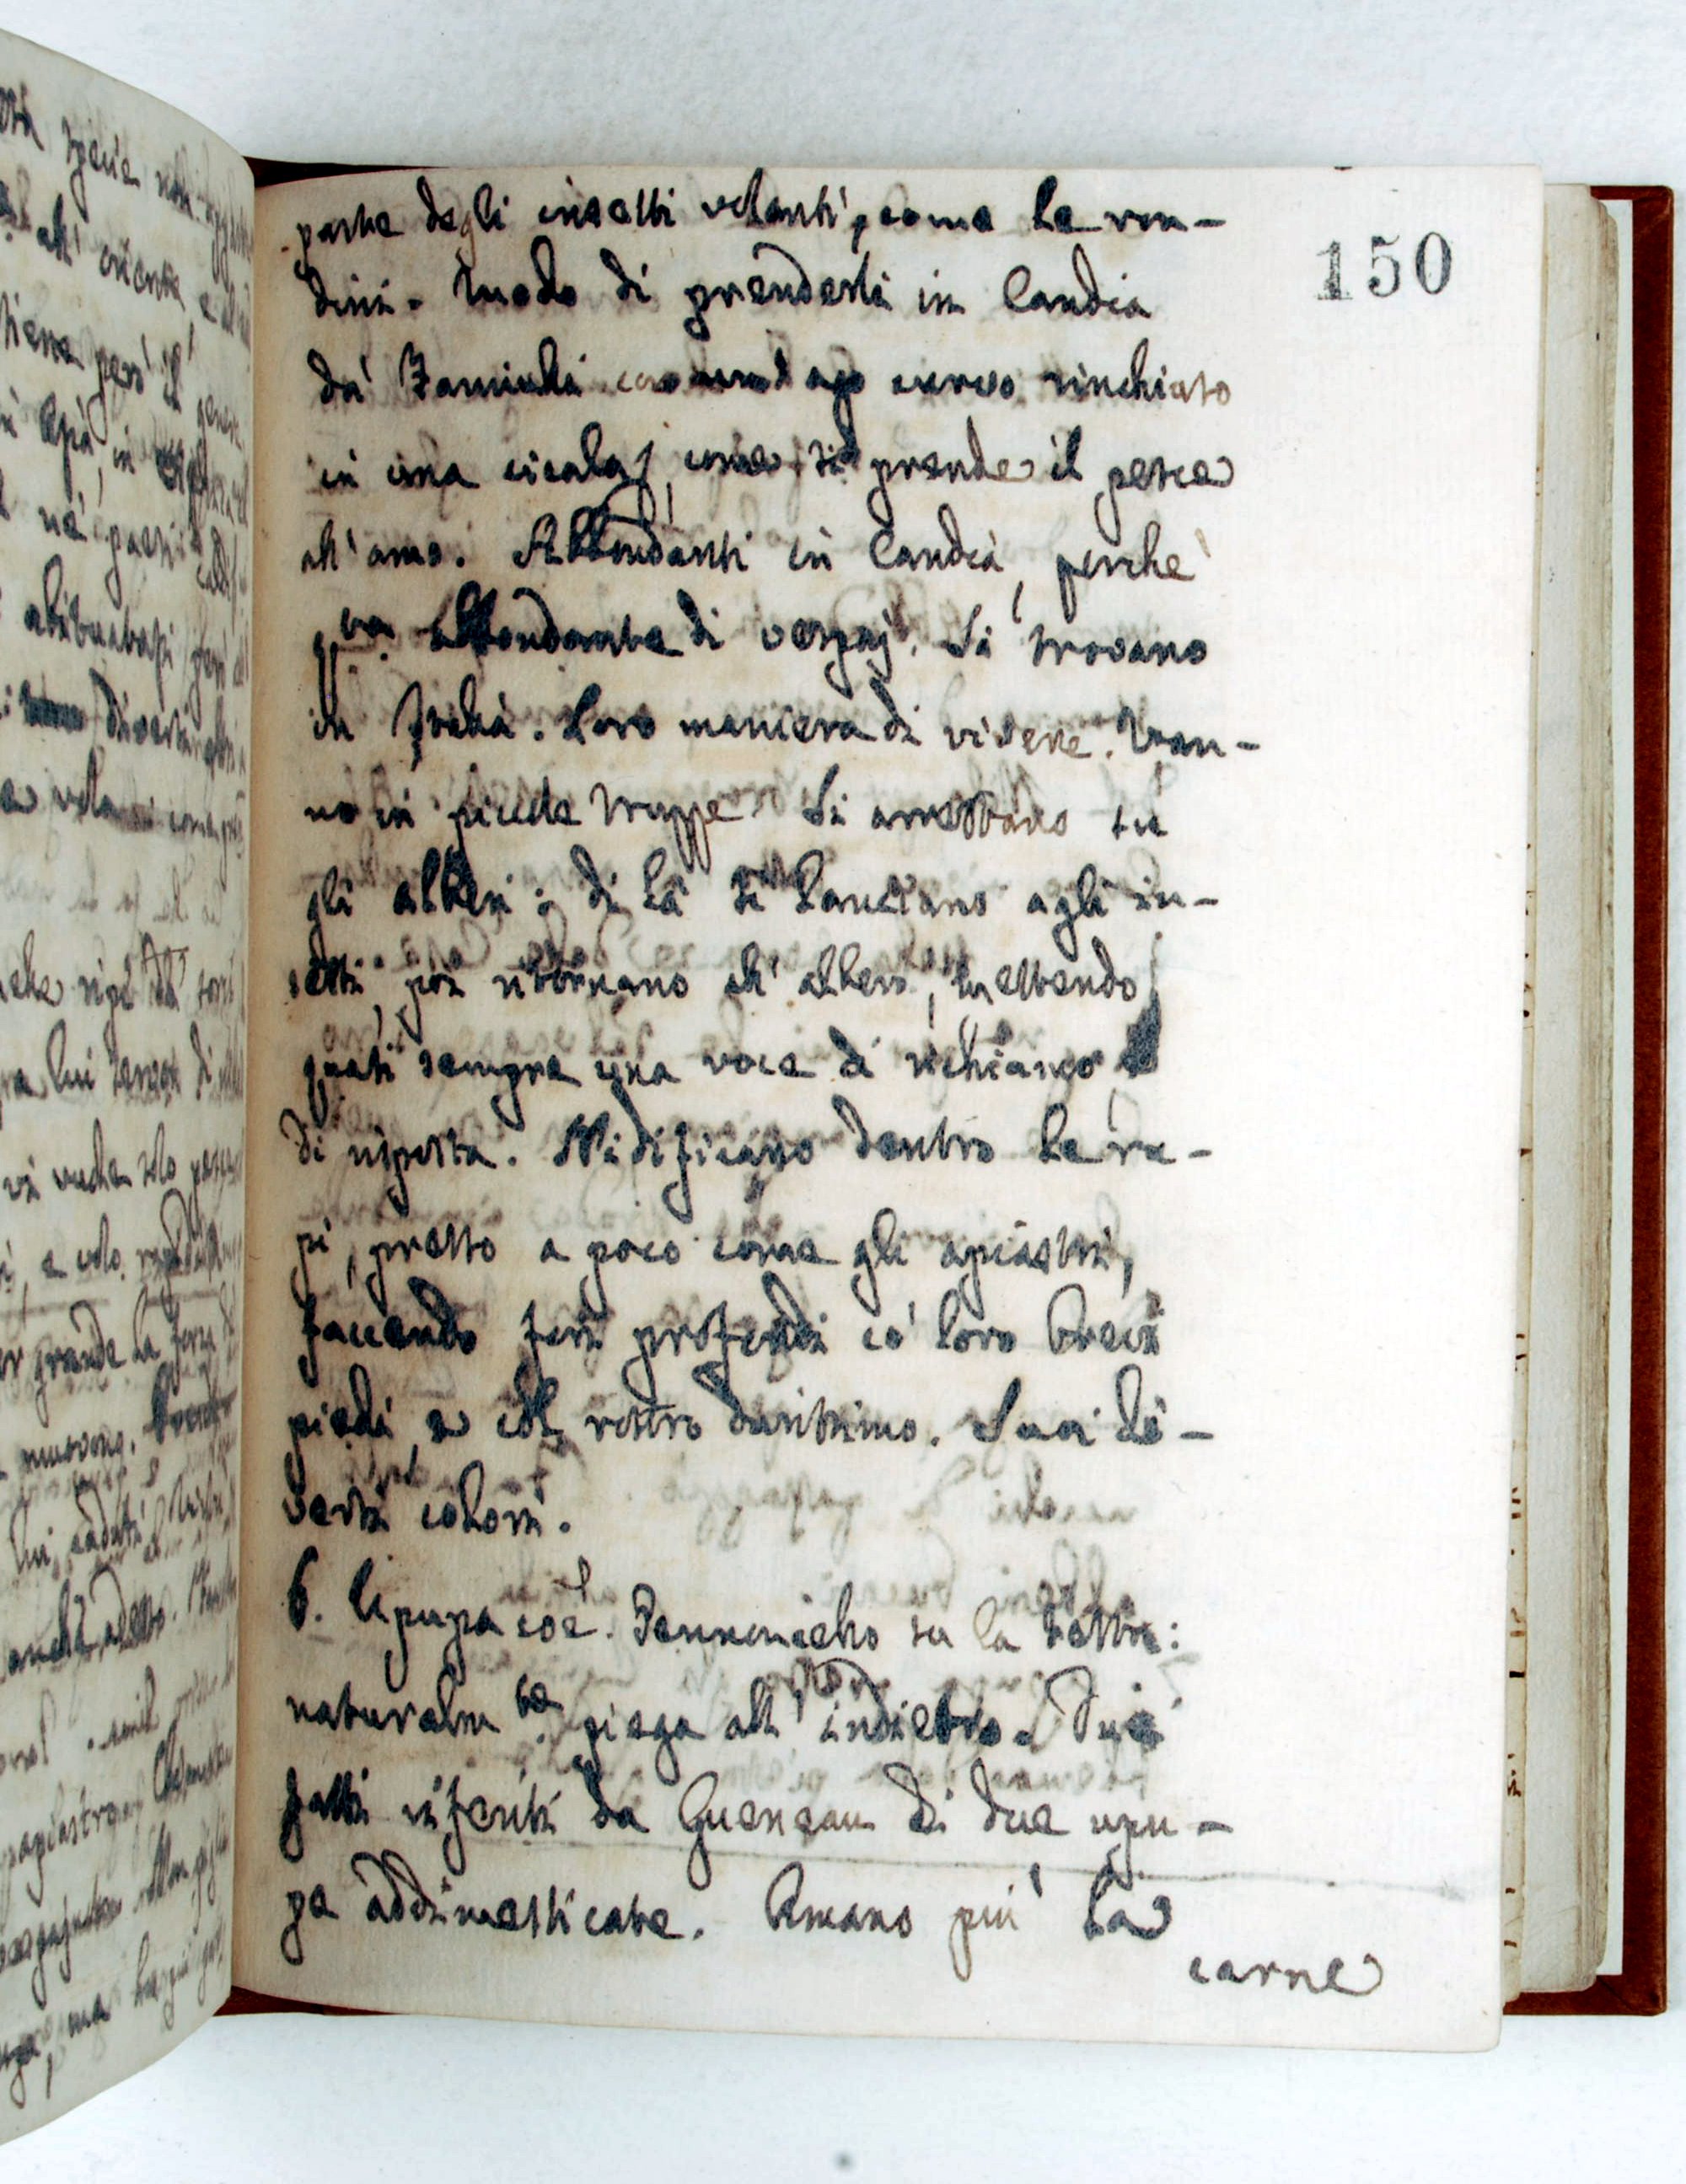 150
parte degli insetti volanti, come le ron-
dini. Modo di prenderli in Candia
da' fanciulli con un ago curvo rinchiuso
in una cicala, come si prende il pesce
all'amo. Abbondanti in Candia, perchè
abbondante di vespaj. Si trovano
in Italia. Loro maniera di vivere. Van-
no in piccole truppe. Si arrestano su
gli alberi: di là si lanciano agli in-
setti, poi ritornano all'albero, mettendo
quasi sempre una voce di richiamo
di risposta. Nidificano dentro le ru-
pi, presso a poco come gli apiastri,
facendo fori profondi co' loro brevi
piedi, e col rostro durissimo. Suoi di-
versi colori.
6. Upupa eos. Pennacchio su la testa:
naturalm.te piega all'indietro. Due
fatti riferiti da Gueneau di due upu-
pe addimesticate. Amano più la
carne